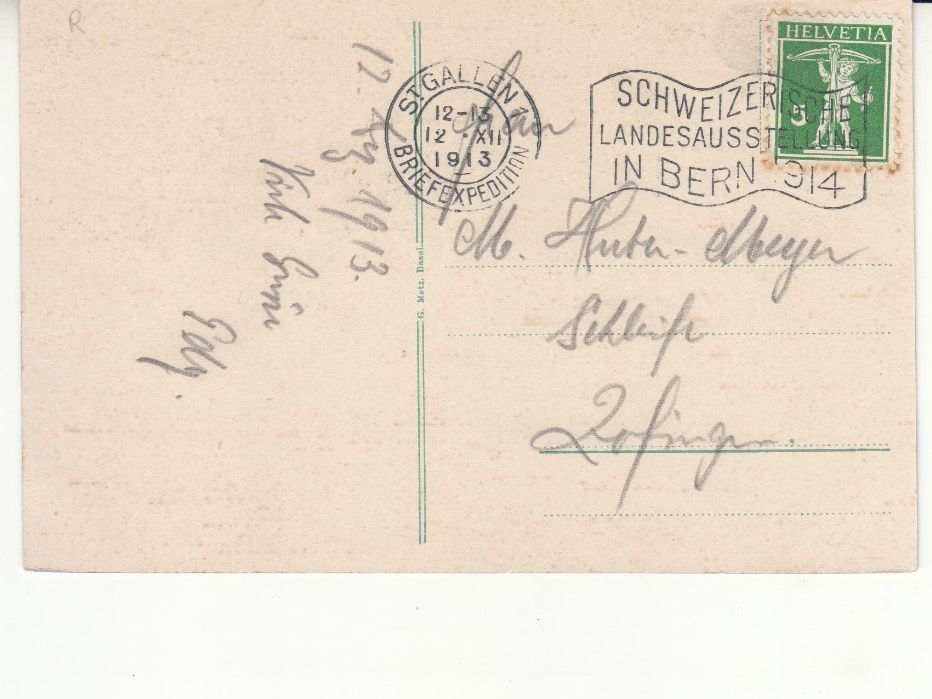 R
HELVETIA
5
ST. GALLEN 1
12-13
12 · XII
1913
BRIEFEXPEDITION
SCHWEIZERISCHE
LANDESAUSSTELLUNG
IN BERN 1914
M. Huter-Meyer
Schleife
Zofingen.
G. Metz. Basel.
1913.
Viele Grüsse